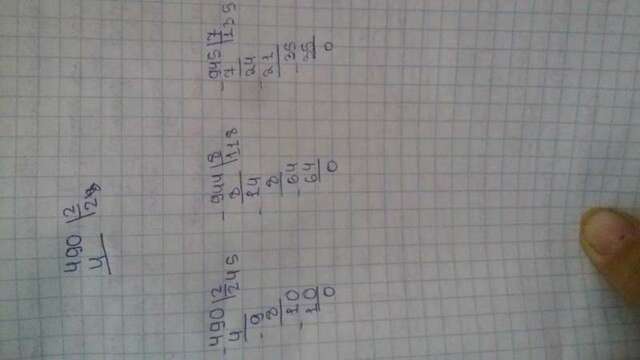 490 | 2
4 | 2
- 490 | 2
4 | 245
- 9
8
- 10
10
0
- 944 | 8
8 | 118
- 14
8
- 64
64
0
- 945 | 7
7 | 135
- 24
21
- 35
35
0